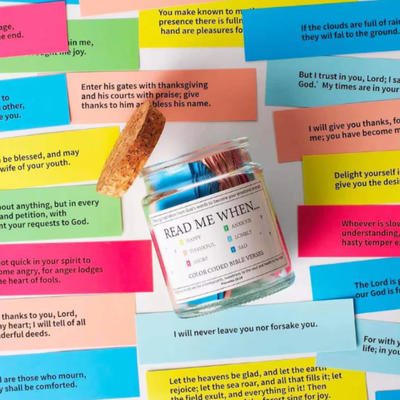 age,
e end.
in me,
ught me joy.
You make known to m
presence there is fulln
hand are pleasures fo
If the clouds are full of rai
they wil fal to the ground.
to
other,
e you.
Enter his gates with thanksgiving
and his courts with praise; give
thanks to him a bless his name.
But I trust in you, Lord; I sa
God.' My times are in your
I will give you thanks, fo
me; you have become m
n be blessed, and may
wife of your youth.
Delight yourself i
give you the desi
bout anything, but in every
and petition, with
nt your requests to God.
READ ME WHEN...
HAPPY
ANXIOUS
THANKFUL
LONELY
ANGRY
SAD
COLOR CODED BIBLE VERSES
Whoever is slow
understanding,
hasty temper ex
ot quick in your spirit to
ome angry, for anger lodges
he heart of fools.
The Lord is
our God is f
thanks to you, Lord,
y heart; I will tell of all
derful deeds.
I will never leave you nor forsake you.
For with yo
life; in you
d are those who mourn,
y shall be comforted.
Let the heavens be glad, and let the earth
rejoice; let the sea roar, and all that fills it; let
the field exult, and everything in it! Then
forest sing for joy.